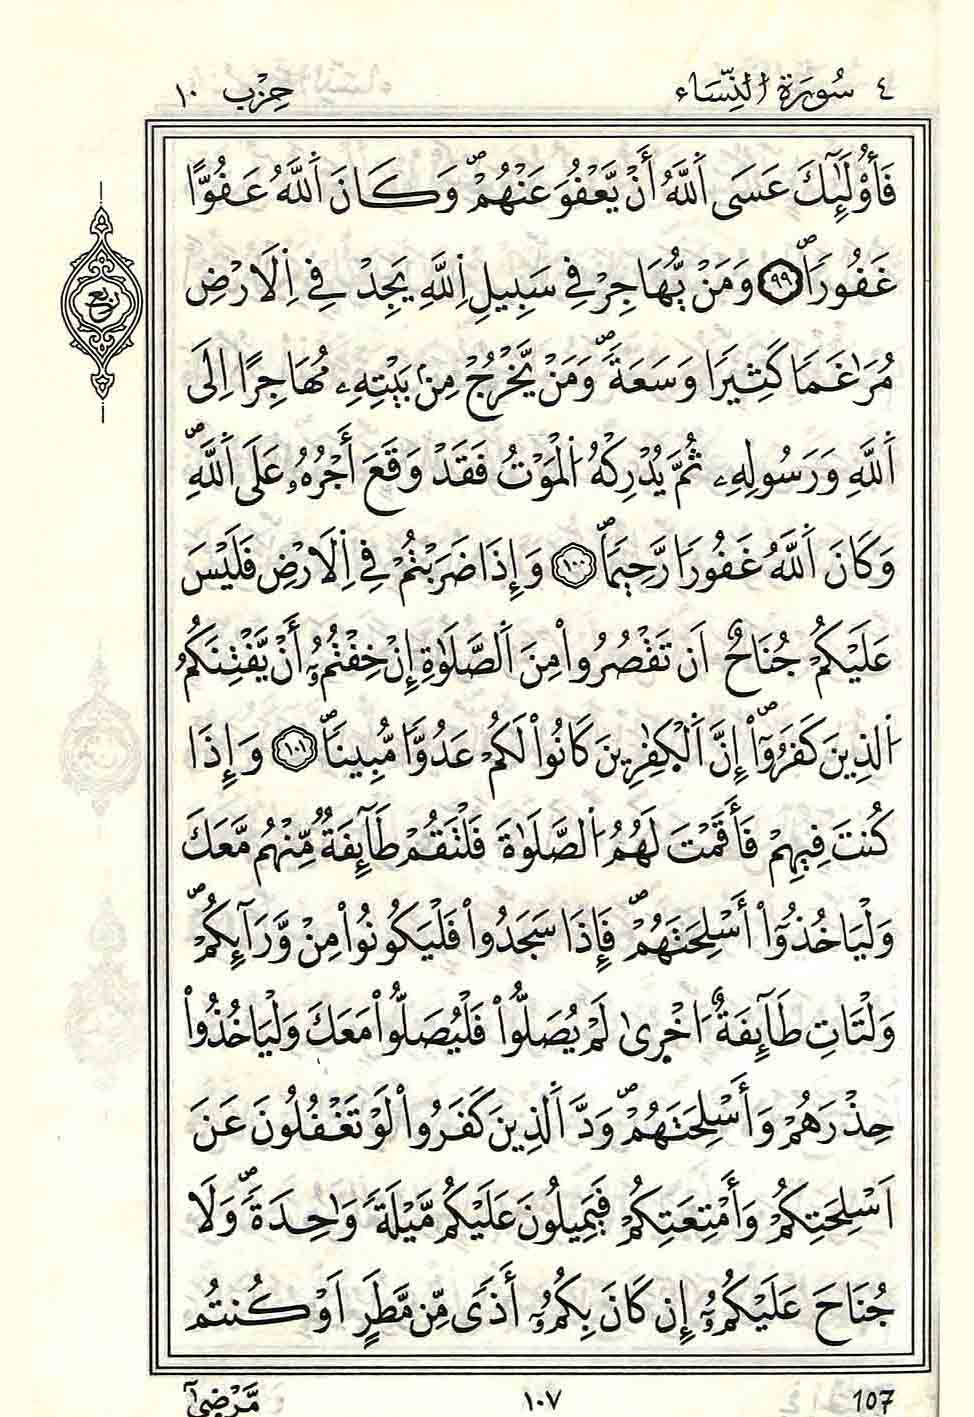 ٤ سُورَةُ النِّسَاء حِزْب ١٠
فَأُوْلَٰٓئِكَ عَسَى اَ۬للَّهُ أَنْ يَّعْفُوَ عَنْهُمْۖ وَكَانَ اَ۬للَّهُ عَفُوًّا
غَفُورًاۖ ٩٩ وَمَنْ يُّهَاجِرْ فِے سَبِيلِ اِ۬للَّهِ يَجِدْ فِے اِ۬لَارْضِ
مُرَٰغَمًا كَثِيرًا وَسَعَةًۖ وَمَنْ يَّخْرُجْ مِنۢ بَيْتِهِۦ مُهَاجِرًا اِلَى
اَ۬للَّهِ وَرَسُولِهِۦ ثُمَّ يُدْرِكْهُ اُ۬لْمَوْتُ فَقَدْ وَقَعَ أَجْرُهُۥ عَلَى اَ۬للَّهِۖ
وَكَانَ اَ۬للَّهُ غَفُورًا رَّحِيمًاۖ ١٠٠ وَإِذَا ضَرَبْتُمْ فِے اِ۬لَارْضِ فَلَيْسَ
عَلَيْكُمْ جُنَاحٌ اَن تَقْصُرُواْ مِنَ اَ۬لصَّلَوٰةِ إِنْ خِفْتُمُۥٓ أَنْ يَّفْتِنَكُمُ
اُ۬لذِينَ كَفَرُوٓاْۖ إِنَّ اَ۬لْكٰفِرِينَ كَانُواْ لَكُمْ عَدُوًّا مُّبِينًاۖ ١٠١ وَإِذَا
كُنتَ فِيهِمْ فَأَقَمْتَ لَهُمُ اُ۬لصَّلَوٰةَ فَلْتَقُمْ طَآئِفَةٌ مِّنْهُم مَّعَكَ
وَلْيَاخُذُوٓاْ أَسْلِحَتَهُمْۖ فَإِذَا سَجَدُواْ فَلْيَكُونُواْ مِنْ وَّرَآئِكُمْۖ
وَلْتَاتِ طَآئِفَةٌ اُخْر۪ىٰ لَمْ يُصَلُّواْ فَلْيُصَلُّواْ مَعَكَ وَلْيَاخُذُواْ
حِذْرَهُمْ وَأَسْلِحَتَهُمْۖ وَدَّ اَ۬لذِينَ كَفَرُواْ لَوْ تَغْفُلُونَ عَنَ
اَسْلِحَتِكُمْ وَأَمْتِعَتِكُمْ فَيَمِيلُونَ عَلَيْكُم مَّيْلَةً وَٰحِدَةًۖ وَلَا
جُنَاحَ عَلَيْكُمُۥٓ إِن كَانَ بِكُمُۥٓ أَذىً مِّن مَّطَرٍ اَوْ كُنتُم
رُبُع
مَّرْض۪يٰٓ ١٠٧ 107